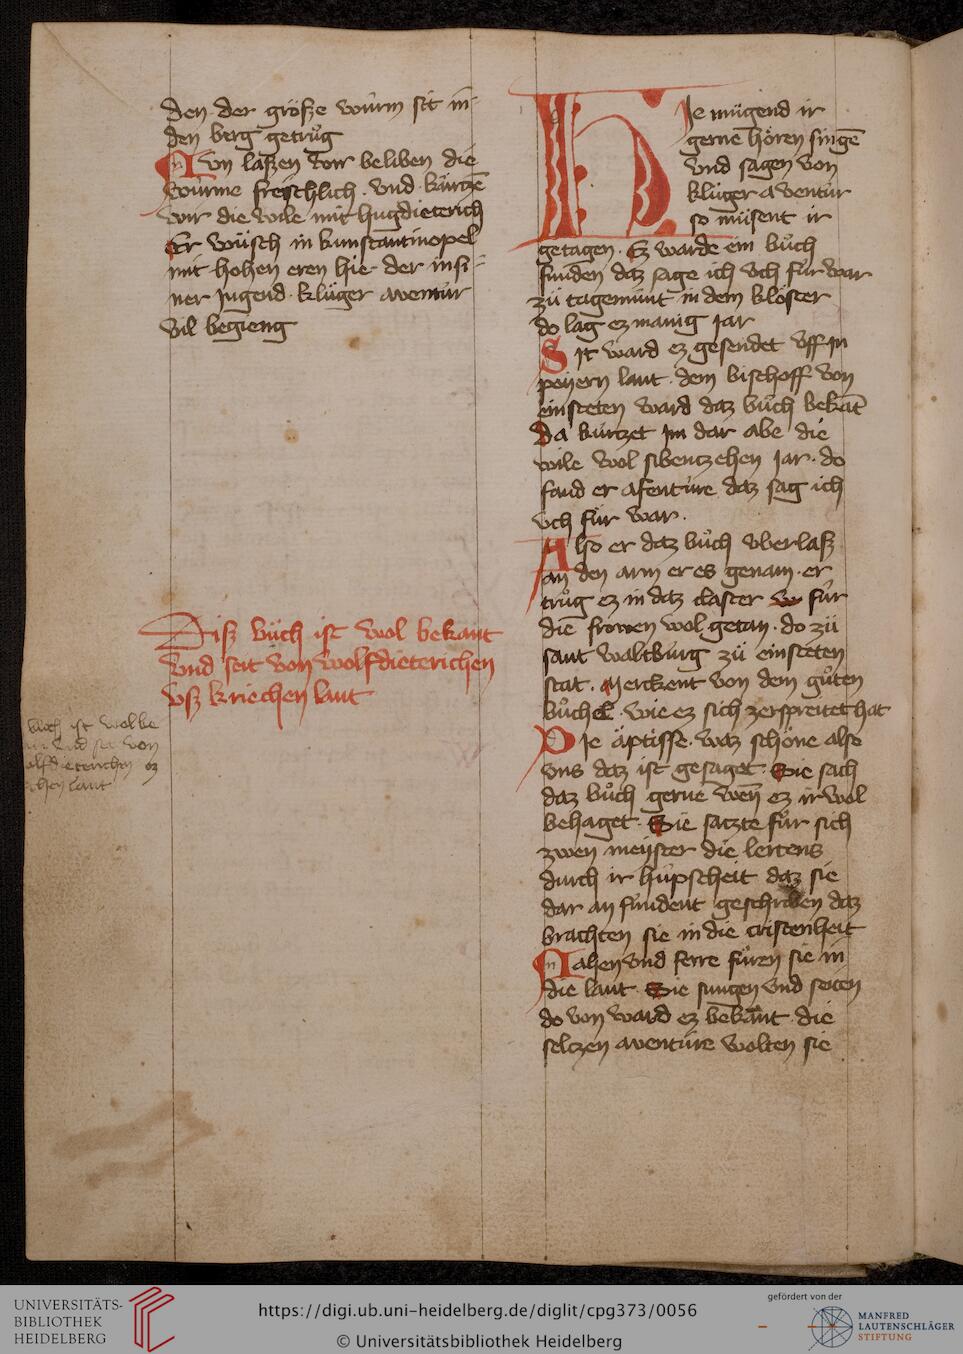 den der große wuͤrm sit in
den berg getruͦg
Nun laßen wir beliben die
wuͤrme freischlich · vnd kuͤrczē
wir die wile mit hugdieterich
Er wuͦsch in kunstantinopel
mit hohen eren hie · der in si=
ner Jugend · kluͦger aventuͤr
vil begieng
Diß buͤch ist wol bekant
vnd seit von wolfdieterichen
vß kriechen lant
buch ist wol be
vnd seit von
olfdieterichen vz
chen lant
Hie muͤgend ir
gerne hoͤren singē
vnd sagen von
kluͦger aventuͤr
so muͤsent ir
getagen · Ez warde ein buͦch
funden daz sage ich vch fuͤr war
zuͤ tagemuͤnt in dem kloster
do lag ez manig Jar
Sit ward ez gesendet vff in
peyern lant · dem bischoff von
einsteten ward daz buͦch bekāt
Da kuͤrtzet Im dar abe die
wile wol sibentzehen Jar · do
fand er afentuͤre daz sag ich
vch fuͤr war ·
Also er daz buͦch vberlaß
an den arm er es genam · er
truͦg ez in daz closter fuͤr
die frowen wol getan · do zuͤ
sant waltburg zuͤ einsteten
stat · Merckent von dem guͦten
buͦchel · wie ez sich zerspreitet hat
Die aͤptisse · waz schoͤne also
vns daz ist gesaget · Sie sach
daz buͦch gerne wen̄ ez ir wol
behaget · Sie satzte fuͤr sich
zwen meister die lertens
durch ir huͤpscheit daz sie
dar an fundent geschriben daz
brachten sie in die cristenheit
Nahen vnd ferre fuͦren sie in
die lant · Sie sungen vnd seiten
do von ward ez bekant · die
seltzen aventuͤre wolten sie
UNIVERSITÄTS-
BIBLIOTHEK
HEIDELBERG
https://digi.ub.uni-heidelberg.de/diglit/cpg373/0056
© Universitätsbibliothek Heidelberg
gefördert von der
MANFRED
LAUTENSCHLÄGER
STIFTUNG